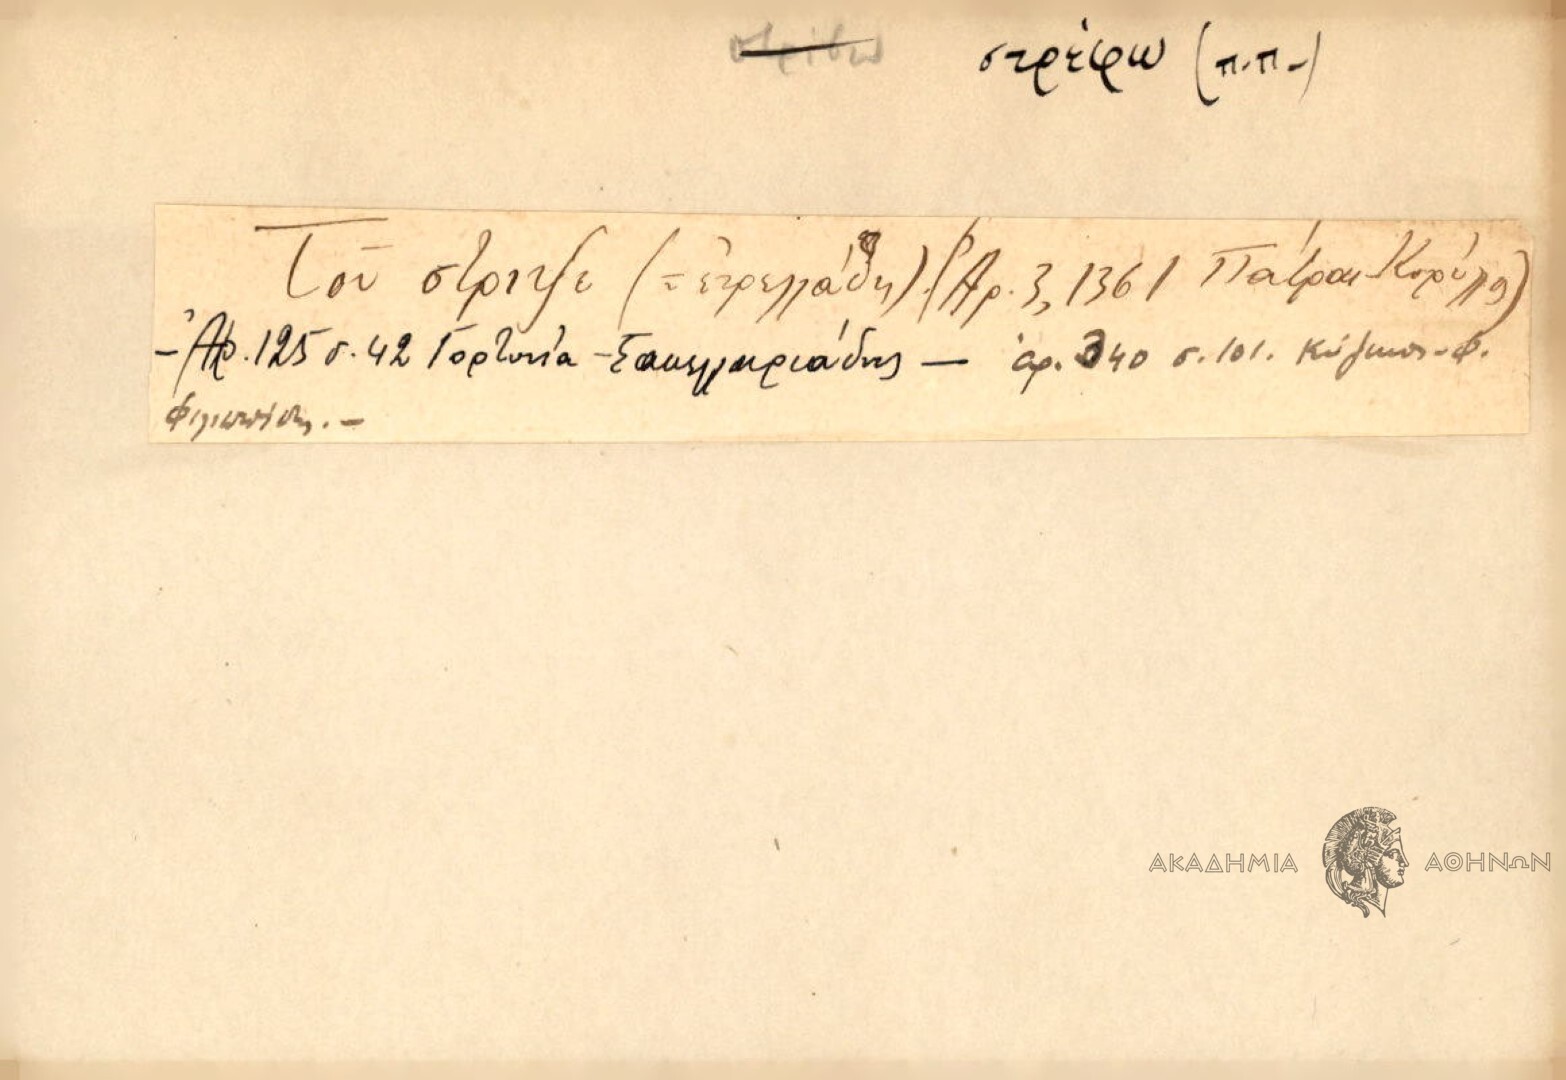 στρέφω (π.π.-)
Τοῦ στριψε (= ἐτρελλάθη) (Ἀρ. 3, 1361 Πάτραι Κορύλλο)
- Ἀρ. 125 σ. 42 Γορτυνία - Σακελλαριάδης — ἀρ. 340 σ. 101. Κύζικος - Φ.
Φιλιππίδης. -
ΑΚΑΔΗΜΙΑ ΑΘΗΝΩΝ